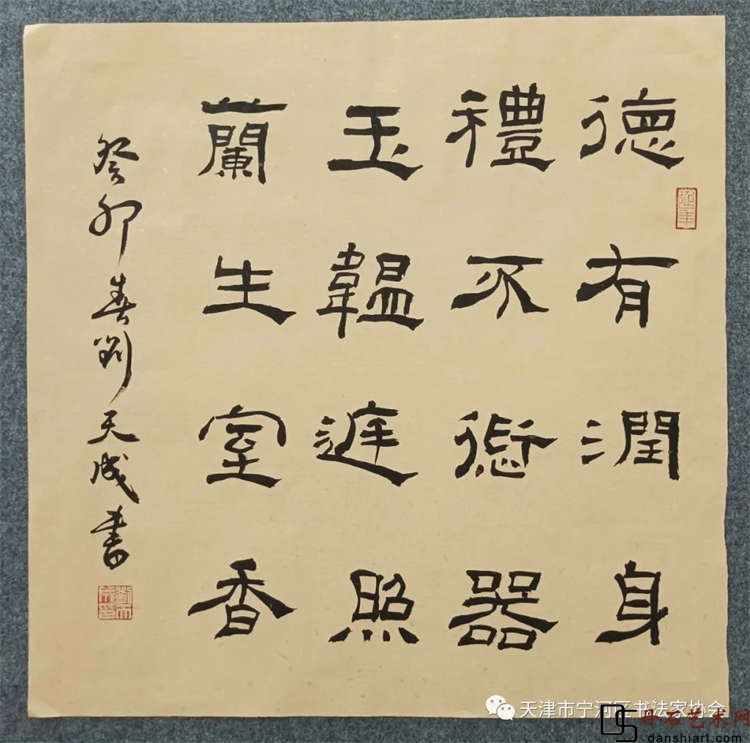 德有潤身
禮不愆器
玉韞庭照
蘭生室香
癸卯春劉天成書
天津市宁河区书法家协会
丹石艺术网
danshiart.com